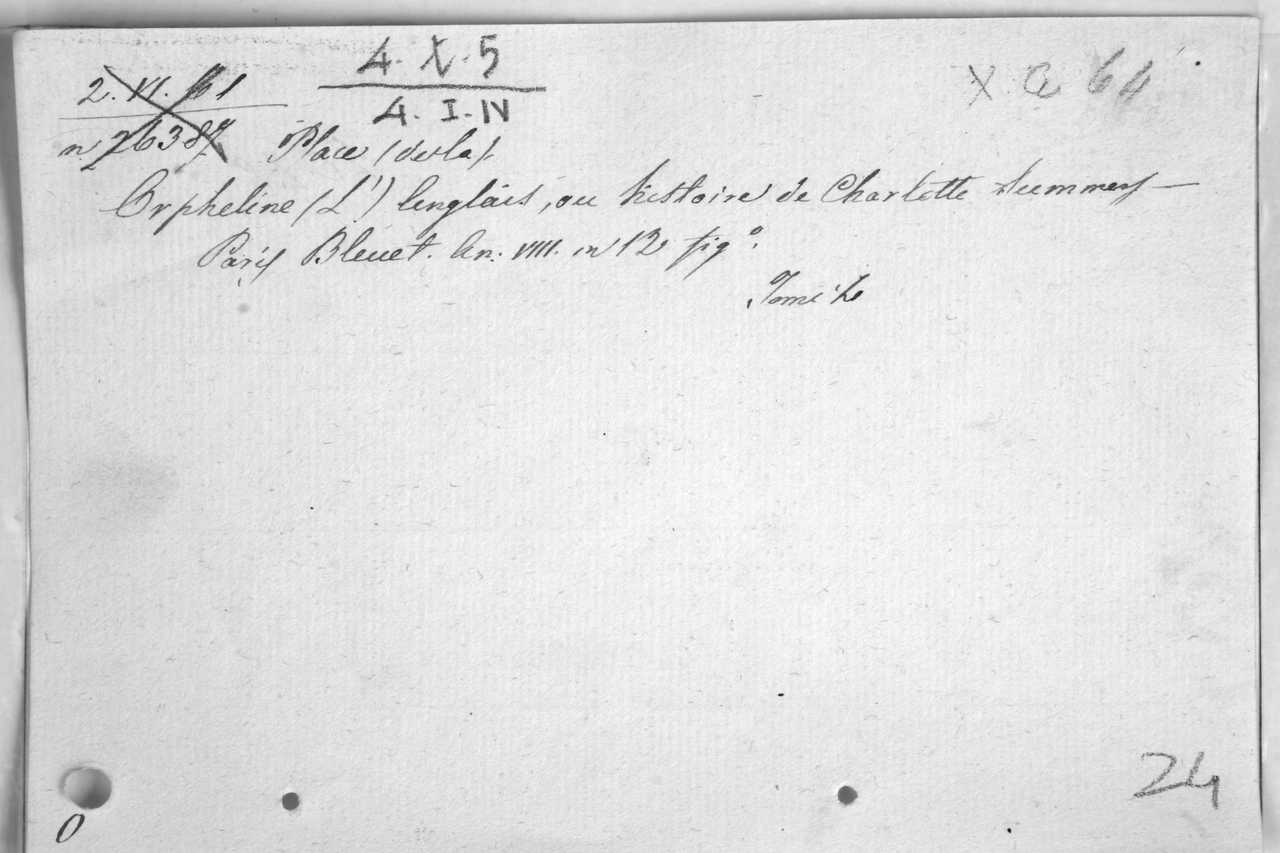 4. X. 5
2. VI. 61
4. I. IV
X a 64
n 26387 Place (de la).
Orpheline (L') Anglais, ou histoire de Charlotte Summers —
Paris Bleuet. An. VIII. in 12 fig°.
Tomi 4
24
0